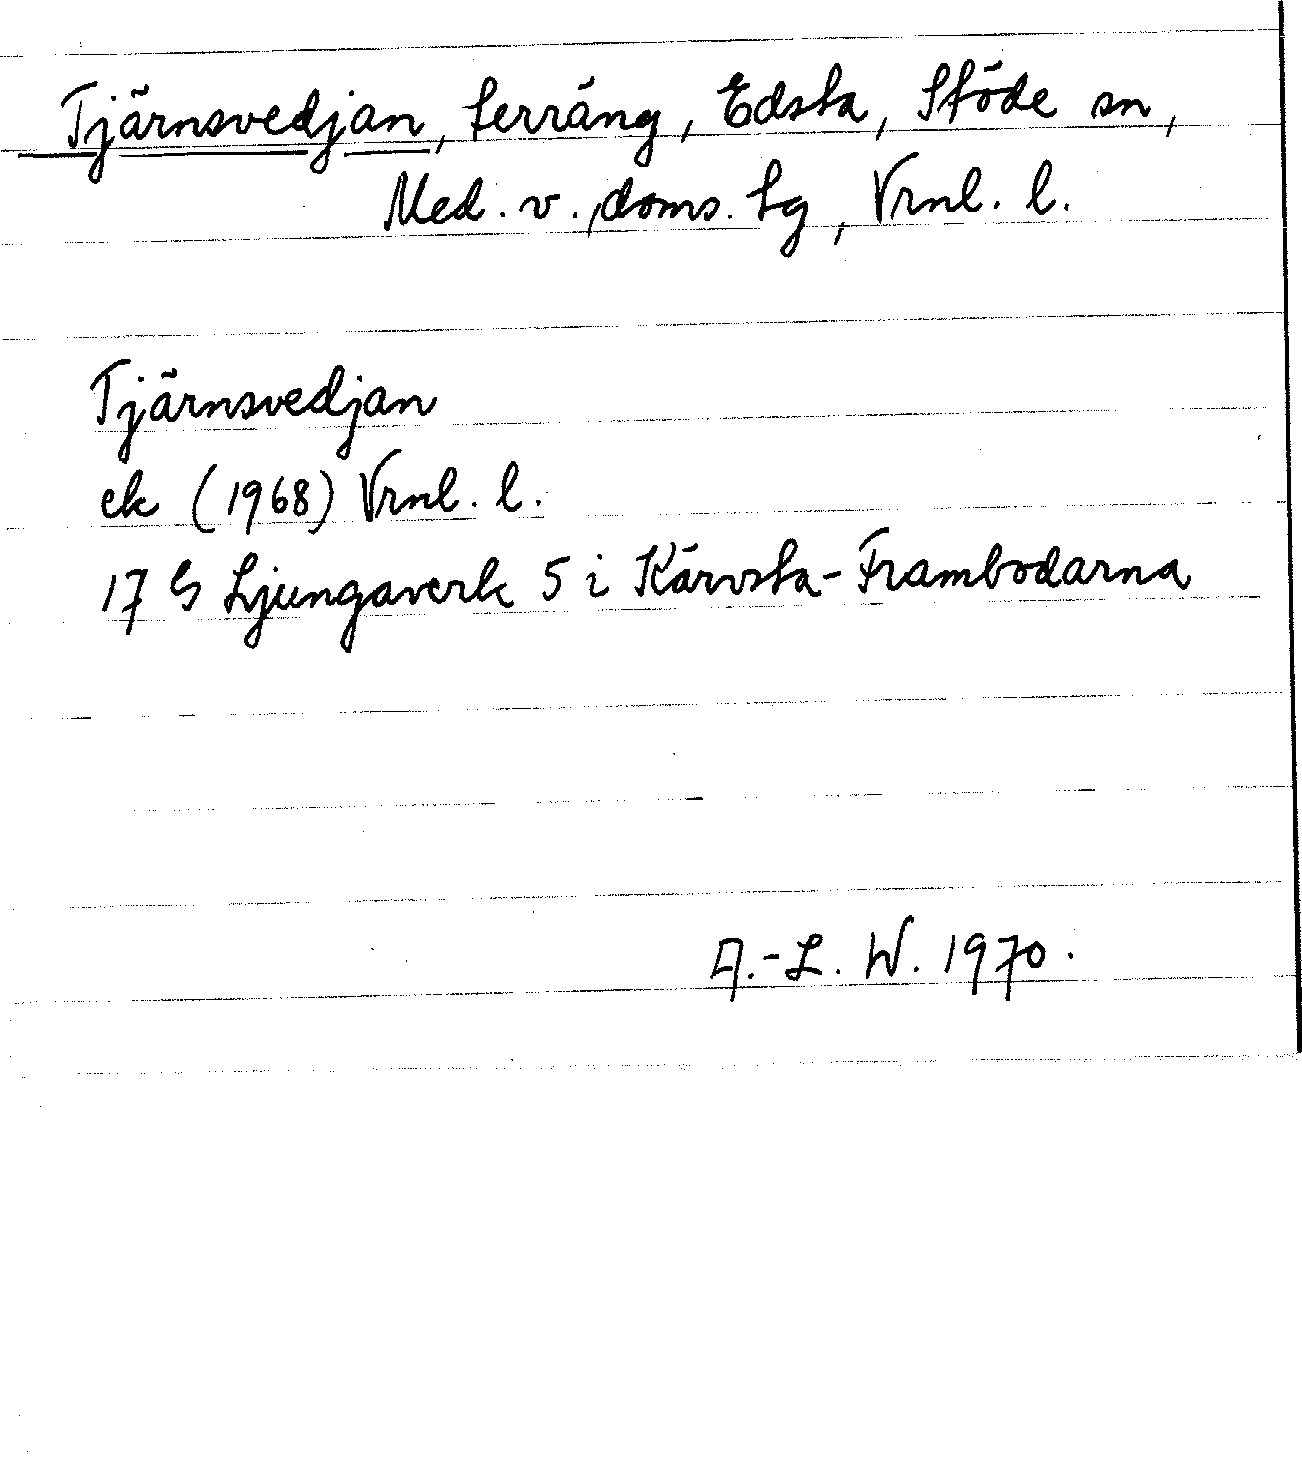 Tjärnsvedjan, terräng, Edsta, Stöde sn,
Med. v., doms. tg, Vrnl. l.
Tjärnsvedjan
ek (1968) Vrnl. l.
17 G Ljungaverk 5 i Kärvsta-Frambodarna
A.-L. W. 1970.